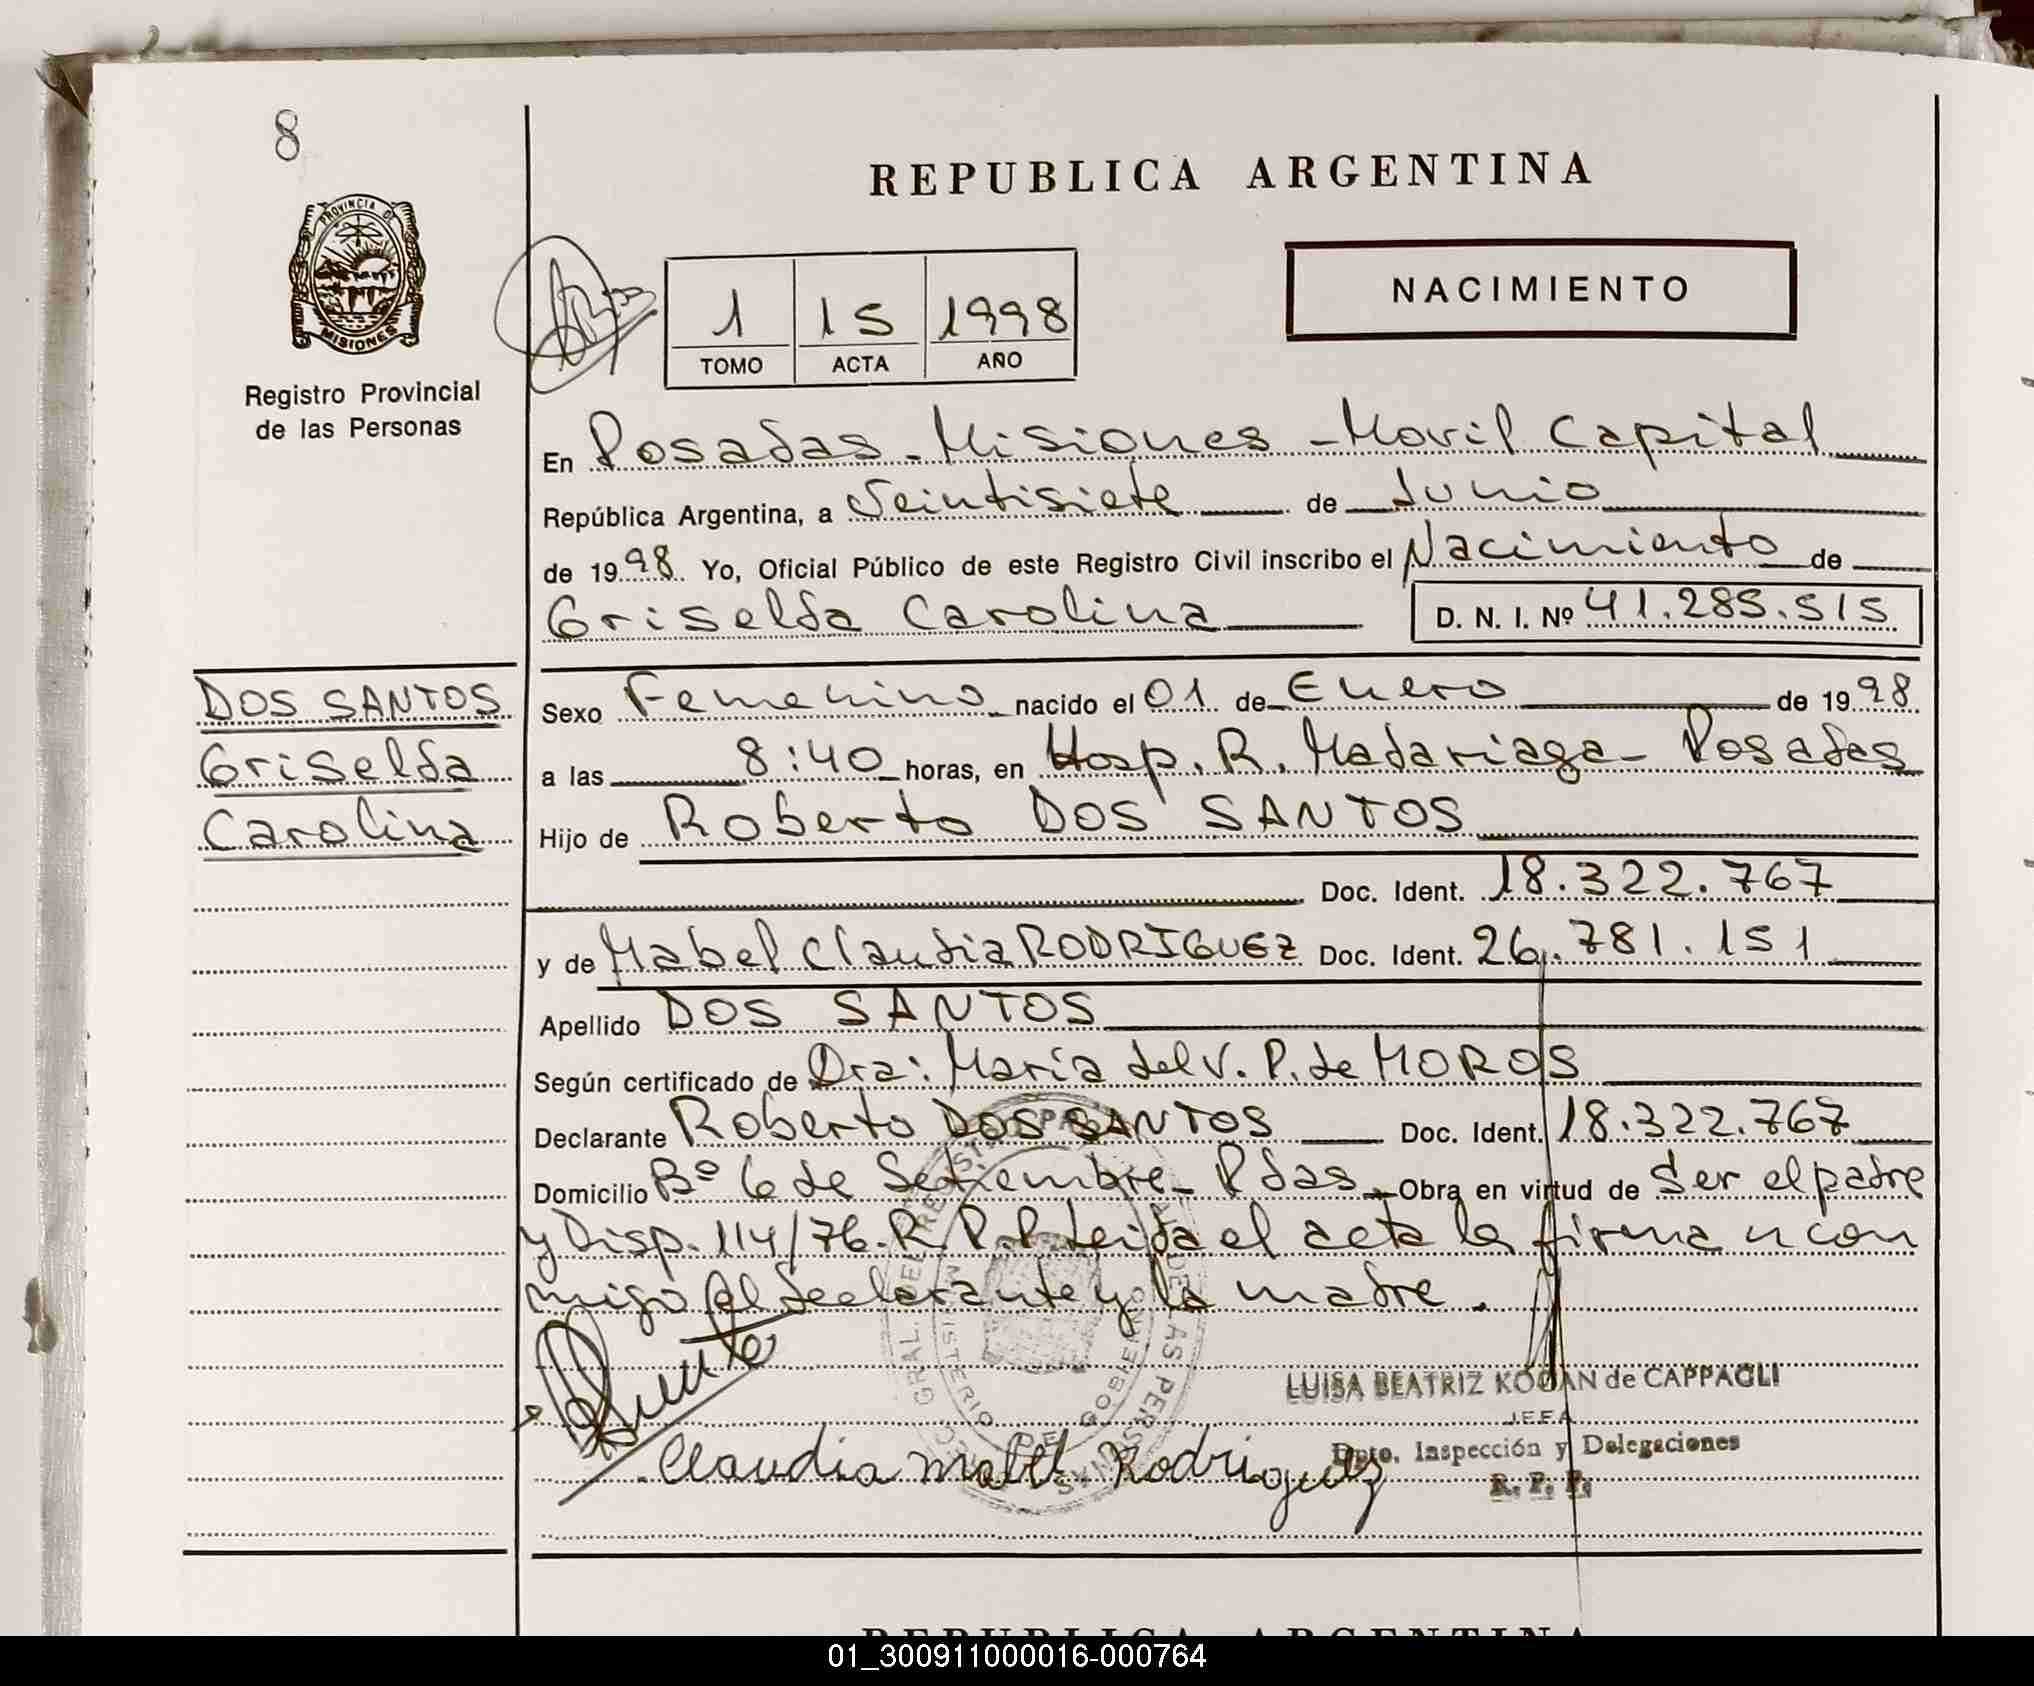 8
REPUBLICA ARGENTINA
PROVINCIA DE
MISIONES
Registro Provincial
de las Personas
1 15 1998
TOMO ACTA AÑO
NACIMIENTO
En Posadas - Misiones - Movil Capital
República Argentina, a Veintisiete de Junio
de 1998 Yo, Oficial Público de este Registro Civil inscribo el Nacimiento de
Griselda Carolina D. N. I. Nº 41.285.515
DOS SANTOS
Griselda
Carolina
Sexo Femenino nacido el 01 de Enero de 1998
a las 8:40 horas, en Hosp. R. Madariaga - Posadas
Hijo de Roberto DOS SANTOS
Doc. Ident. 18.322.767
y de Mabel Claudia RODRIGUEZ Doc. Ident. 26.781.151
Apellido DOS SANTOS
Según certificado de Dra: María del V. P. de MOROS
Declarante Roberto DOS SANTOS Doc. Ident. 18.322.767
Domicilio Bº 6 de Setiembre - Pdas. Obra en virtud de Ser el padre
y Disp. 114/76. R. P. P. Leida el acta la firma n con
migo el declarante y la madre.
LUISA BEATRIZ KOGAN de CAPPAGLI
JEFA
Dpto. Inspección y Delegaciones
R. P. P.
Claudia Mabel Rodriguez
REPUBLICA ARGENTINA
01_300911000016-000764